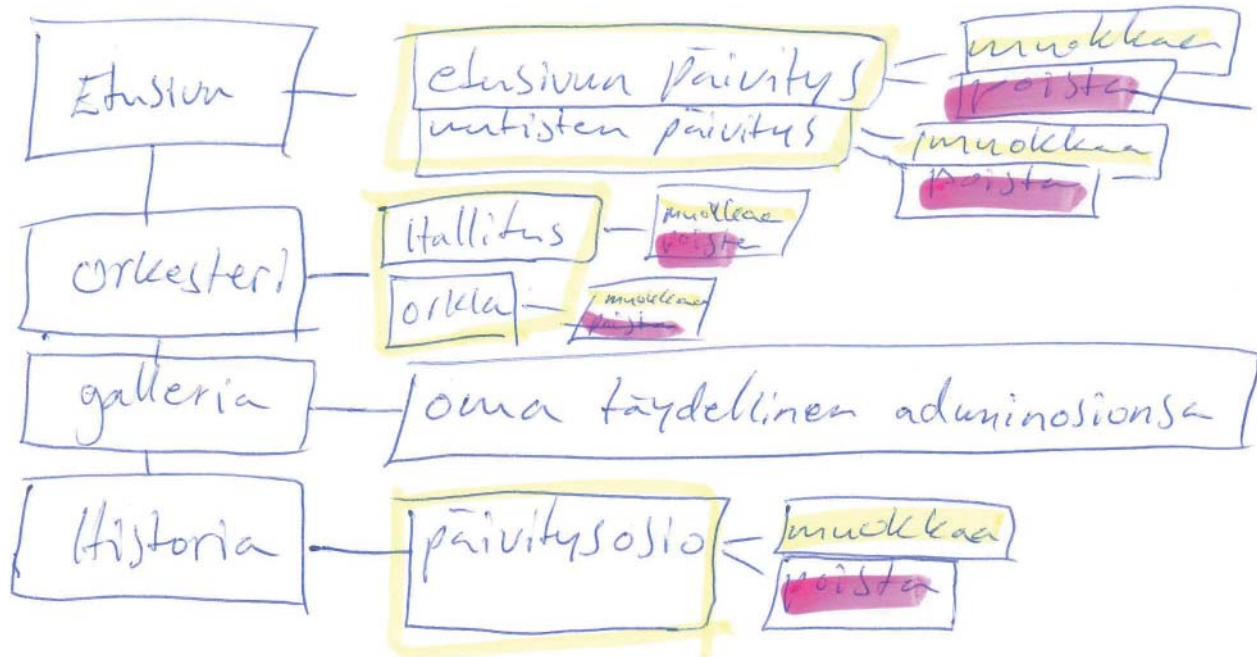 Etusivu
etusivun päivitys
muokkaa
poista
uutisten päivitys
muokkaa
poista
orkesteri
Hallitus
muokkaa
poista
orkla
muokkaa
poista
galleria
oma täydellinen adminosionsa
Historia
päivitysosio
muokkaa
poista